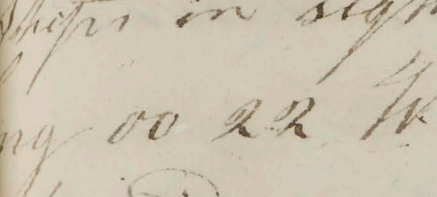 ships in sigh
ng 00 22 W